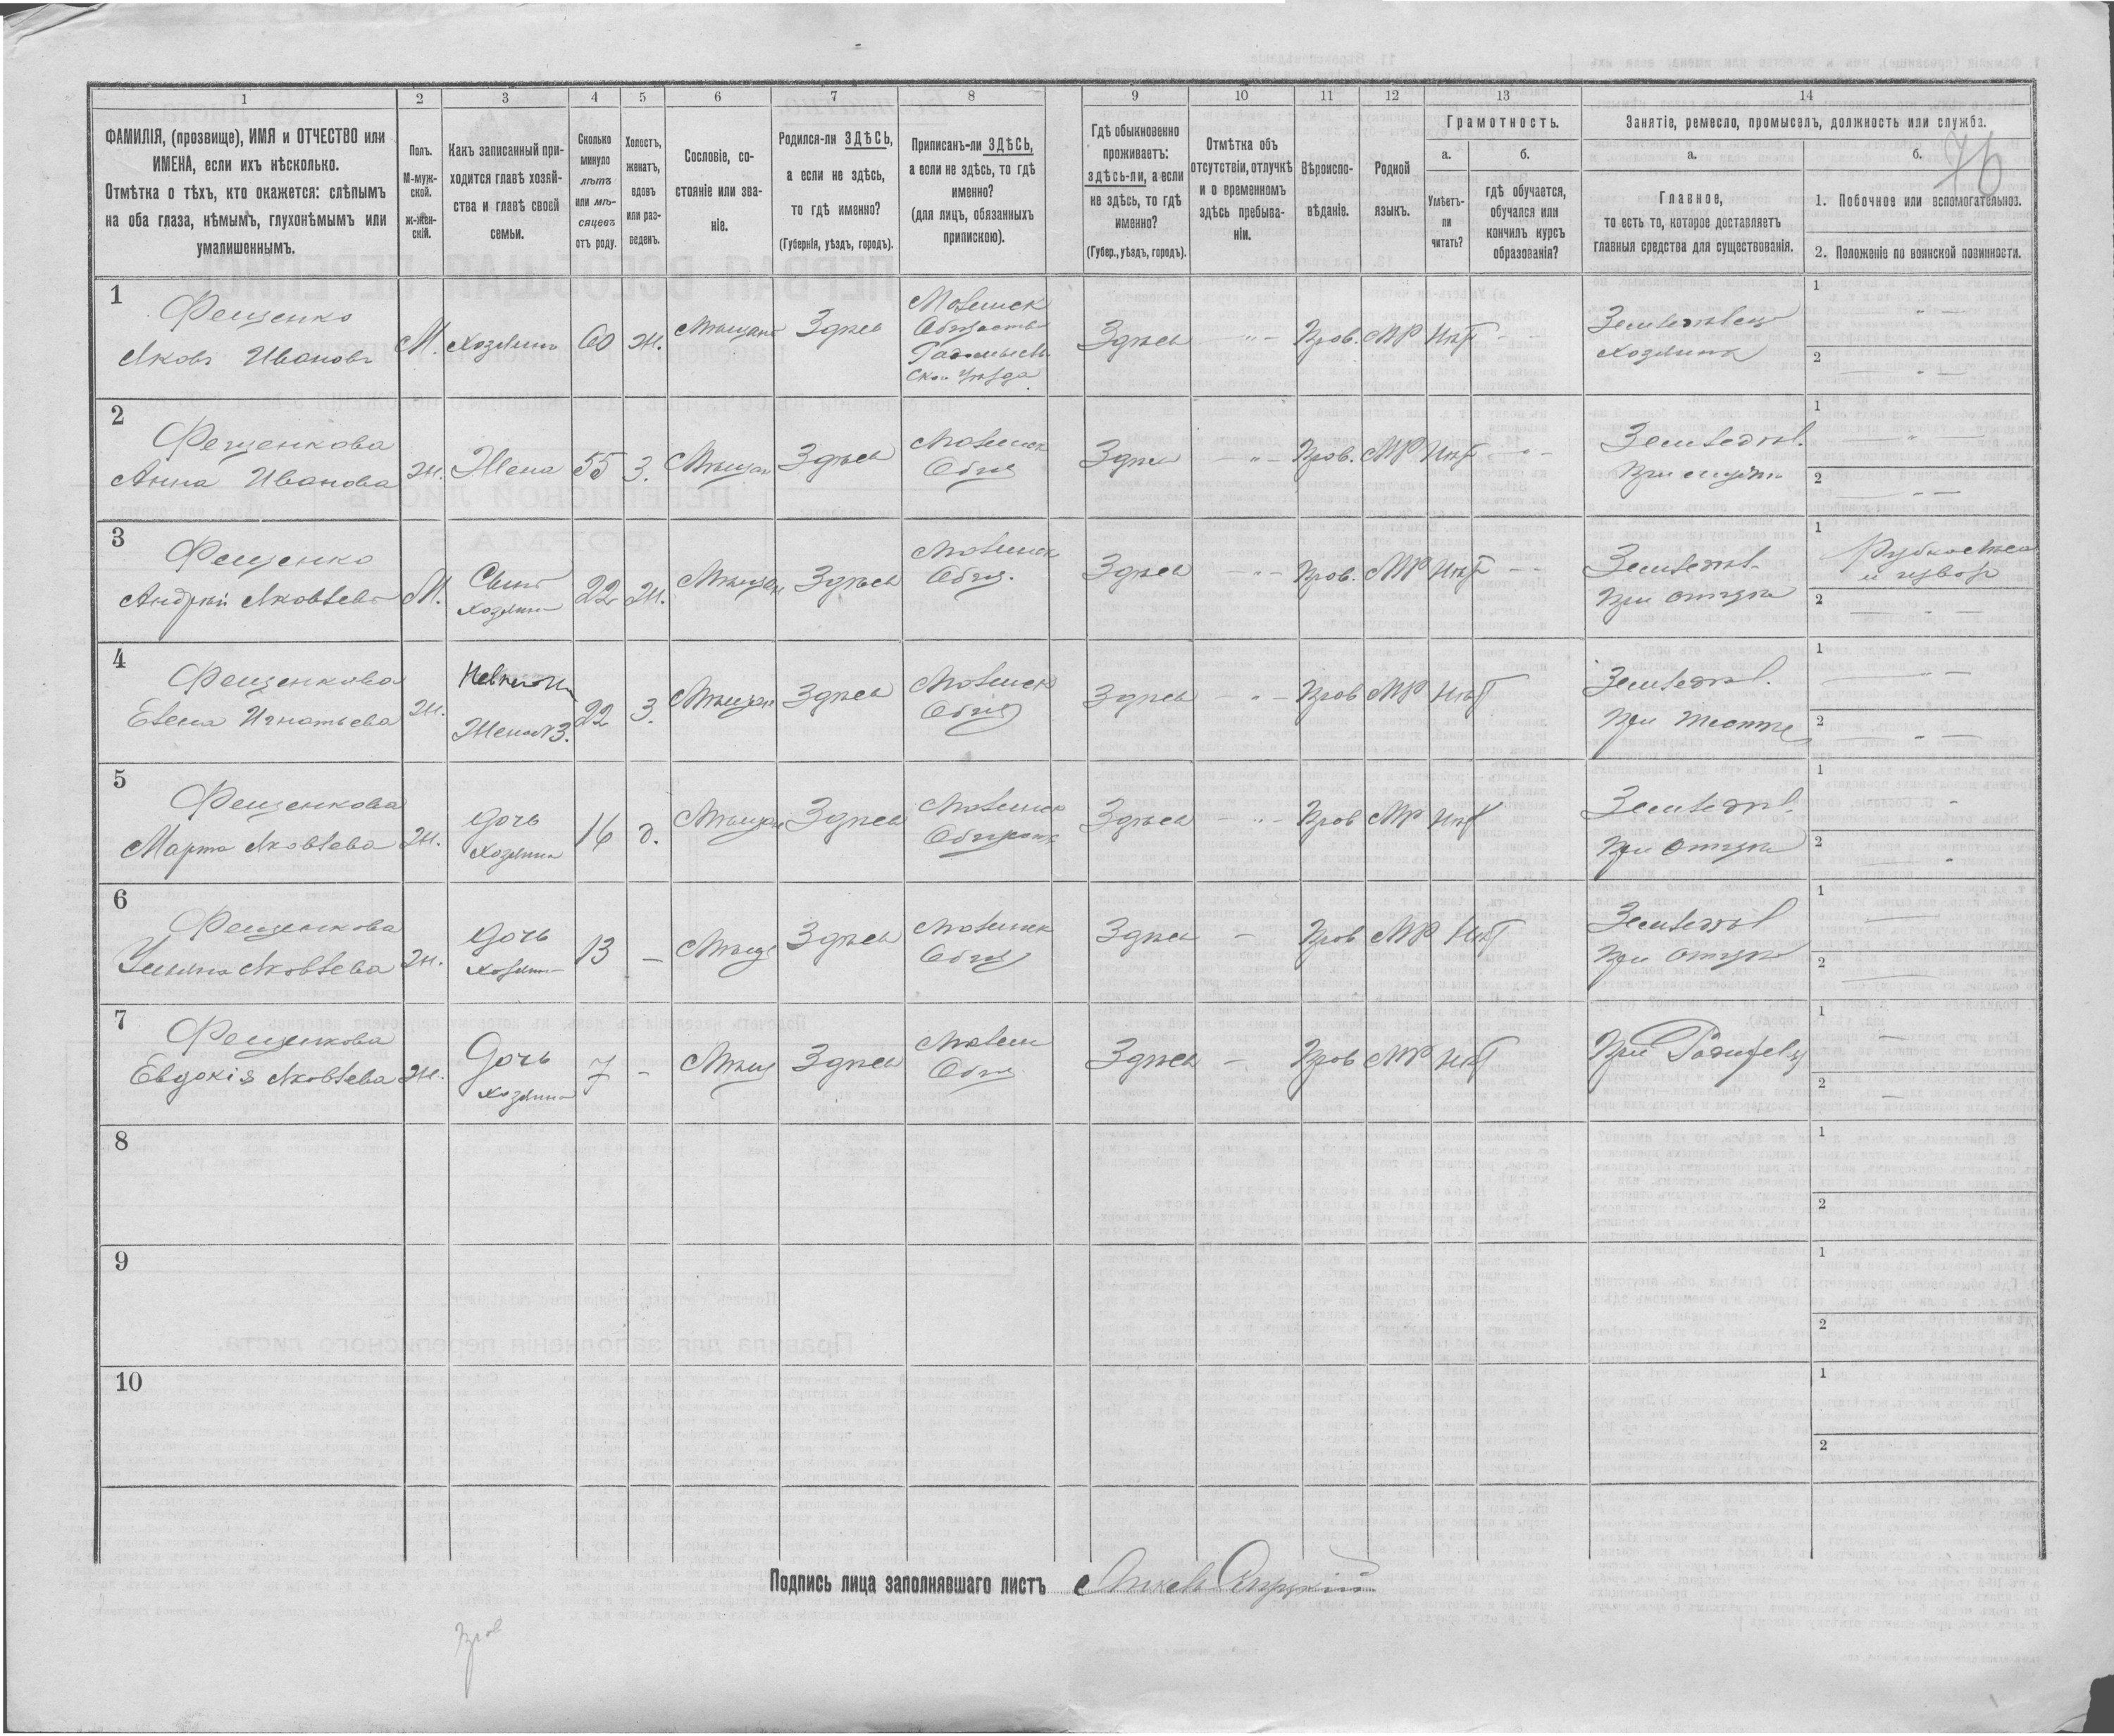 1
2
3
4
5
6
7
8
9
10
11
12
13
14
ФАМИЛІЯ, (прозвище), ИМЯ и ОТЧЕСТВО или
ИМЕНА, если ихъ нѣсколько.
Отмѣтка о тѣхъ, кто окажется: слѣпымъ
на оба глаза, нѣмымъ, глухонѣмымъ или
умалишеннымъ.
Полъ.
М-муж-
ской.
Ж-жен-
скій.
Какъ записанный при-
ходится главѣ хозяй-
ства и главѣ своей
семьи.
Сколько
минуло
лѣтъ
или мѣ-
сяцевъ
отъ роду.
Холостъ,
женатъ,
вдовъ
или раз-
веденъ.
Сословіе, со-
стояніе или зва-
ніе.
Родился-ли ЗДѢСЬ,
а если не здѣсь,
то гдѣ именно?
(Губернія, уѣздъ, городъ).
Приписанъ-ли ЗДѢСЬ,
а если не здѣсь, то гдѣ
именно?
(для лицъ, обязанныхъ
припискою).
Гдѣ обыкновенно
проживаетъ:
здѣсь-ли, а если
не здѣсь, то гдѣ
именно?
(Губер., уѣздъ, городъ).
Отмѣтка объ
отсутствіи, отлучкѣ
и о временномъ
здѣсь пребыва-
ніи.
Вѣроиспо-
вѣданіе.
Родной
языкъ.
Грамотность.
а.
Умѣетъ-
ли
читать?
б.
гдѣ обучается,
обучался или
кончилъ курсъ
образованія?
Занятіе, ремесло, промыселъ, должность или служба.
а.
Главное,
то есть то, которое доставляетъ
главныя средства для существованія.
б.
76
1. Побочное или вспомогательное.
2. Положеніе по воинской повинности.
1
Фещенко
Яковъ Ивановъ
М. Хозяинъ 60 ж. Мѣщан Здѣсь
Общества
уѣзда
Здѣсь Прав. МР Нѣт
Хозяинъ
1
2
2
Фещенкова
Анна Иванова
ж. Жена 55 З. Мѣщан Здѣсь
Общ
Здѣсь Прав. МР Нѣт
Земледѣл.
При мужѣ
1
2
3
Фещенко
Андрей Яковлев
М. Сынъ
хозяина
22 ж. Мѣщан Здѣсь
Общ.
Здѣсь Прав. МР Нѣт
Земледѣл.
При отцѣ
1
2
4
Фещенкова
Елена Игнатьева
ж. Невѣстка
Жена №3.
22 З. Мѣщан Здѣсь
Общ
Здѣсь Прав МР Нѣт
Земледѣл.
При тестѣ
1
2
5
Фещенкова
Марта Яковлева
ж. Дочь
хозяина
16 д. Мѣщан Здѣсь
Здѣсь Прав МР Нѣт
Земледѣл.
При отцѣ
1
2
6
Фещенкова
Ульяна Яковлева
ж. Дочь
хозяин
13 – Мѣщ Здѣсь
Общ
Здѣсь – Прав МР Нѣт
Земледѣл
При отцѣ
1
2
7
Фещенкова
Евдокія Яковлева
ж. Дочь
хозяина
7 – Мѣщ Здѣсь
Общ
Здѣсь – Прав МР Нѣт
При
1
2
8
1
2
9
1
2
10
1
2
Подпись лица заполнявшаго листъ